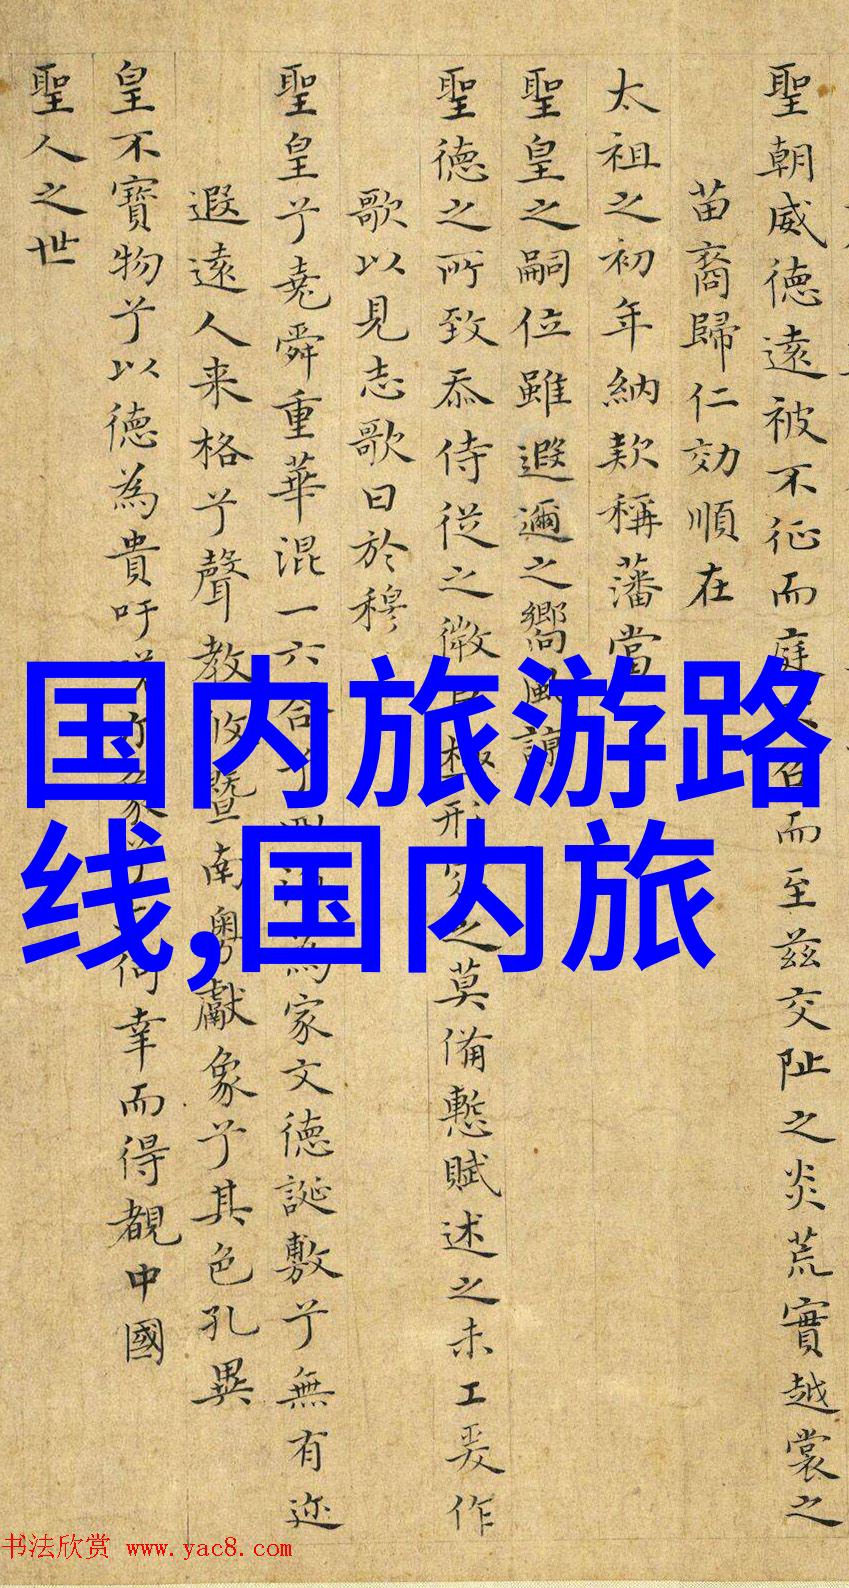 聖朝威德遠被不征而庭而至茲交阯之炎荒實越裳之
苗裔歸仁効順在
太祖之初年納款稱藩當
聖皇之嗣位雖遐邇之嚮風諒
聖德之所致忝侍從之微臣極形之莫備慙賦述之未工爰作
歌以見志歌曰於穆
聖皇兮堯舜重華混一六合兮為家文德誕敷兮無有迩
遐遠人来格兮聲教攸暨南粵獻象兮其色孔異
皇不寶物兮以德為貴吁嗟象何幸而得覩中國
聖人之世
国内旅游路
线,国内旅
书法欣赏 www.yac8.com